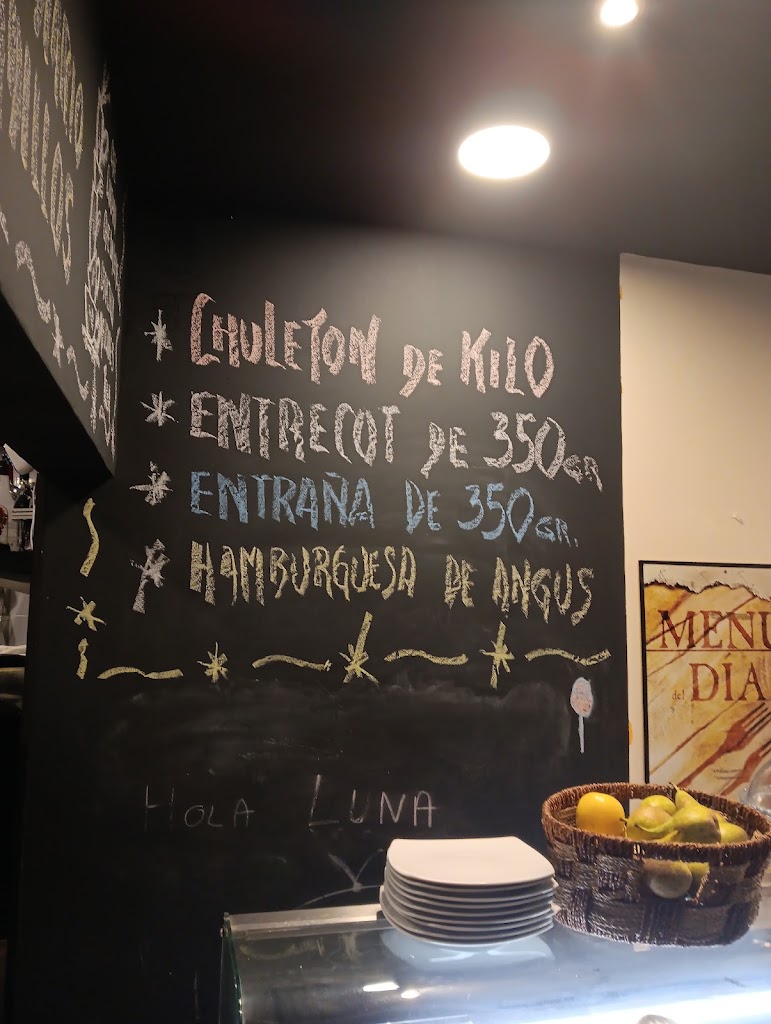 * CHULETON DE KILO
* ENTRECOT DE 350GR
* ENTRAÑA DE 350GR.
* HAMBURGUESA DE ANGUS
HOLA LUNA
MENU
del DÍA